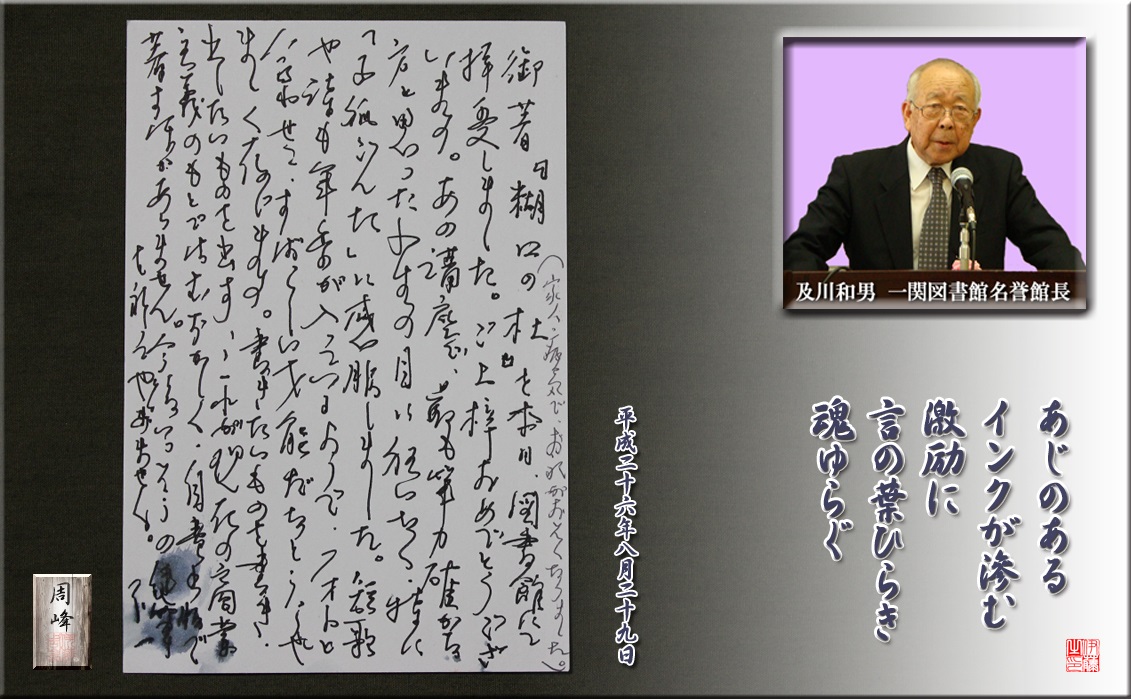 御著 糊口の杜を本日、図書館にて
拝受しました。ご上梓おめでとうござ
います。あの 筆力確かな
方と思った小生の目に狂いなく、特に
に感服しました。短歌
や詩も年季が入っているようで、フォトと
合わせて、すばらしい才能だなとうらや
ましく存じます。書きたいものを書き、
出したいものを出す、これが現在の商業
主義のもとではむずかしく、自費出版で
著す ありません。 いっそうの健筆
を祈ってやみません。
及川和男 一関図書館名誉館長
あじのある
インクが滲む
激励に
言の葉ひらき
魂ゆらぐ
平成二十六年八月二十九日
周峰
伊藤